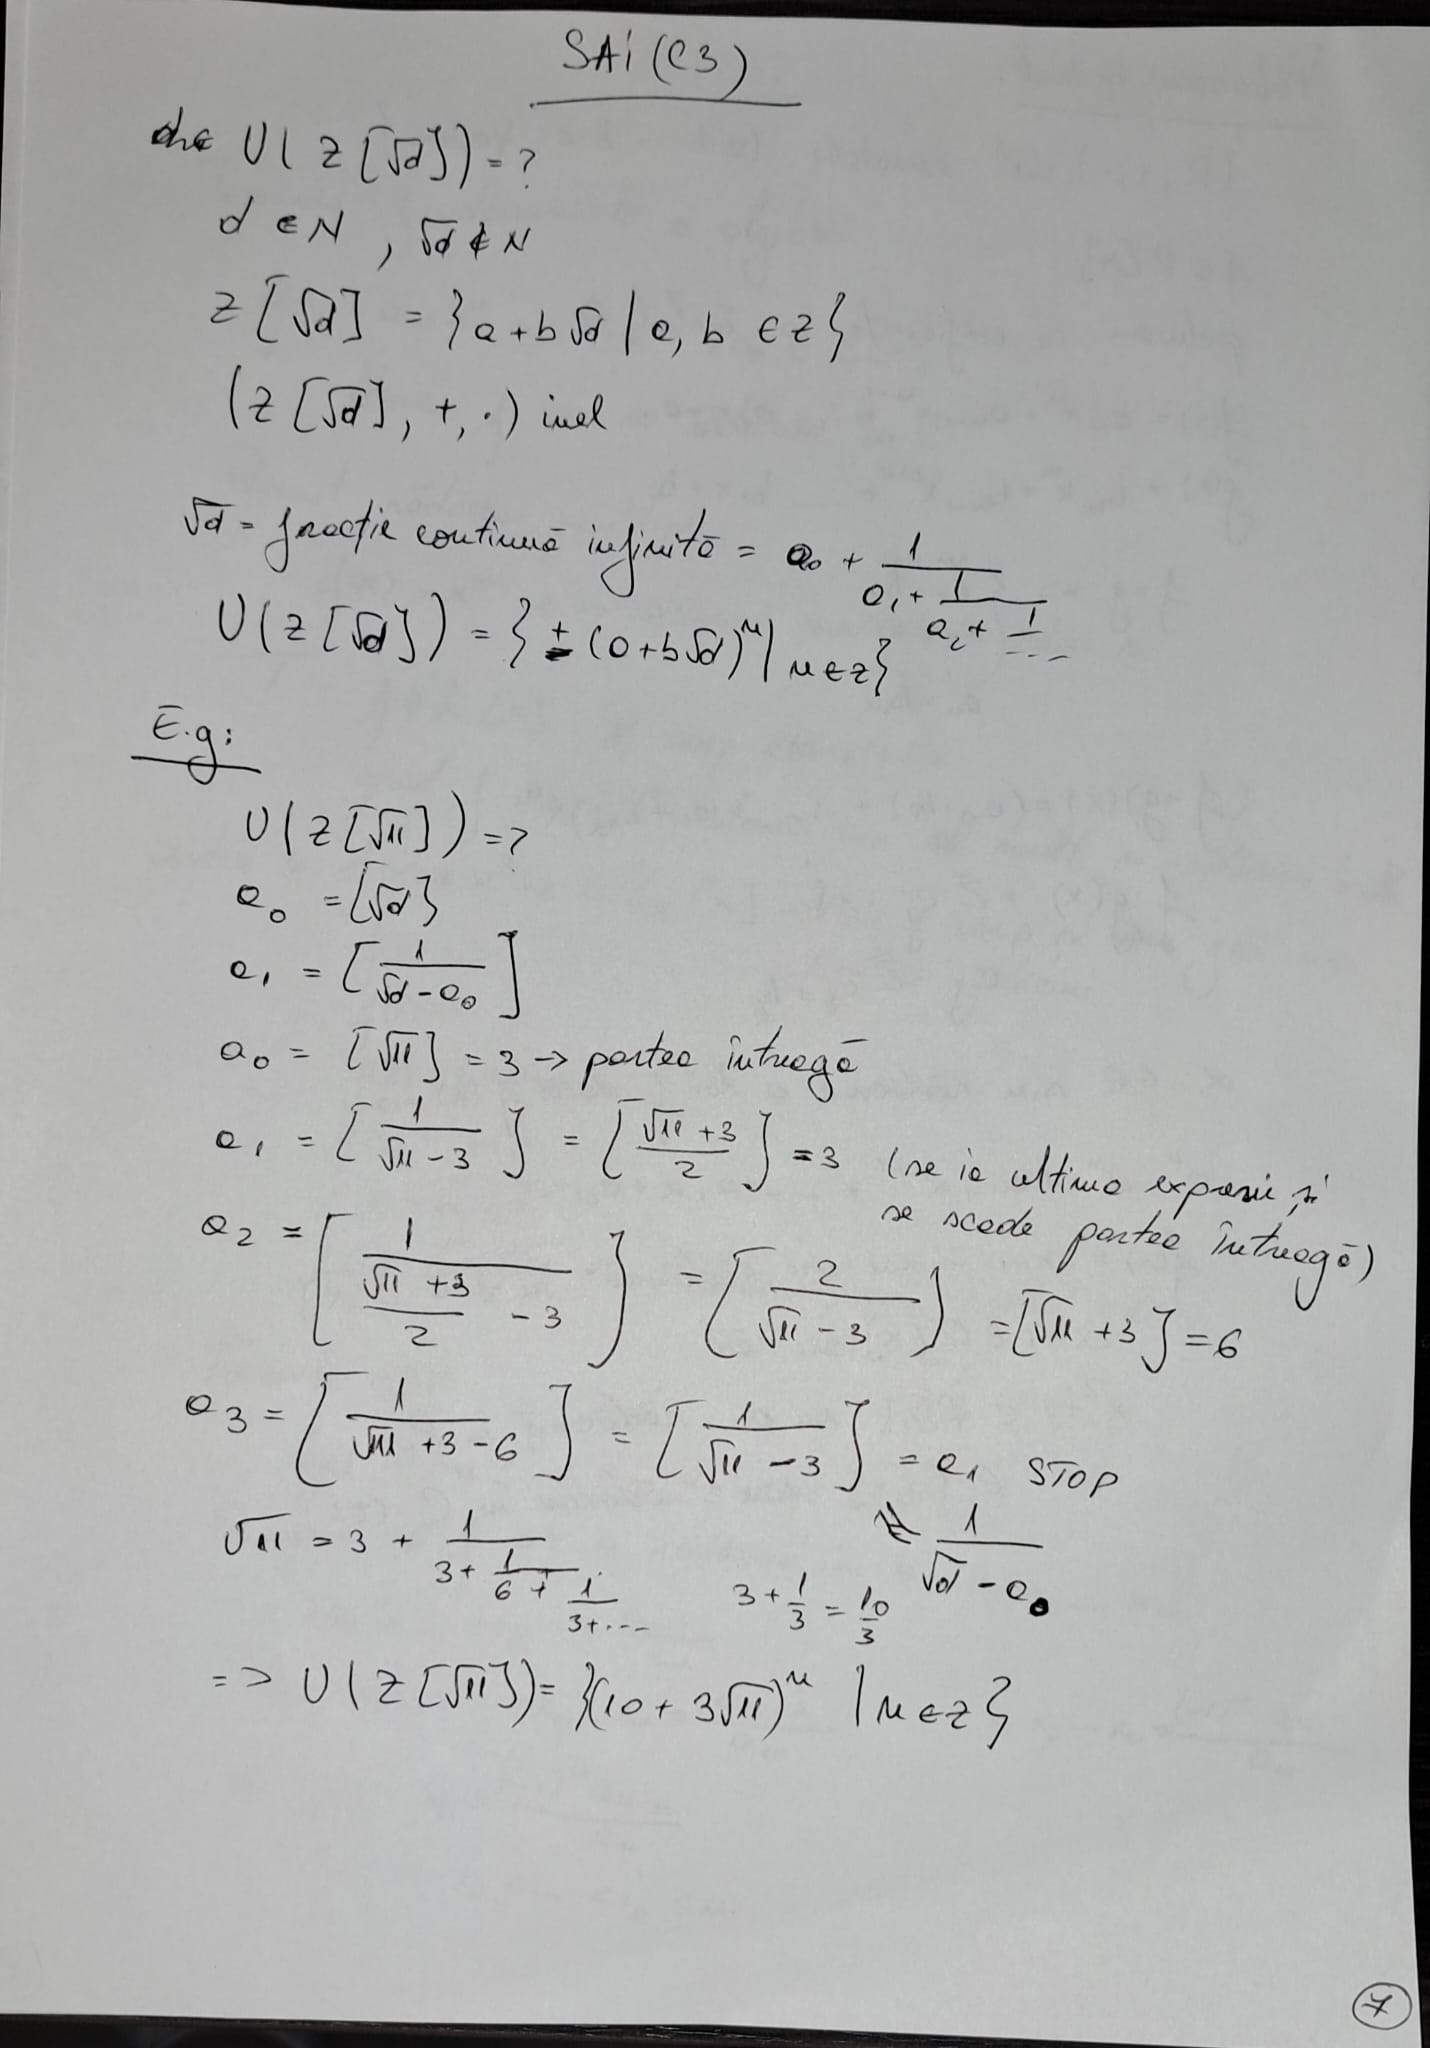 SAI (C3)
U(Z[√d]) = ?
d ∈ N, √d ∉ N
Z[√d] = {a+b√d | a, b ∈ Z}
(Z[√d], +, ·) inel
√d = fracție continuă infinită = a₀ + 1/(a₁ + 1/(a₂ + 1/...))
U(Z[√d]) = {± (a+b√d)ⁿ | n ∈ Z}
E.g:
U(Z[√11]) = ?
a₀ = [√d]
a₁ = [1/(√d - a₀)]
a₀ = [√11] = 3 → partea întreagă
a₁ = [1/(√11 - 3)] = [(√11 + 3)/2] = 3 (se ia ultima expresie și
se scade partea întreagă)
a₂ = [1/((√11 + 3)/2 - 3)] = [2/(√11 - 3)] = [√11 + 3] = 6
a₃ = [1/(√11 + 3 - 6)] = [1/(√11 - 3)] = a₁ STOP
√11 = 3 + 1/(3 + 1/(6 + 1/(3+...))) 3 + 1/3 = 10/3 1/(√d - a₀)
=> U(Z[√11]) = {(10 + 3√11)ⁿ | n ∈ Z}
7